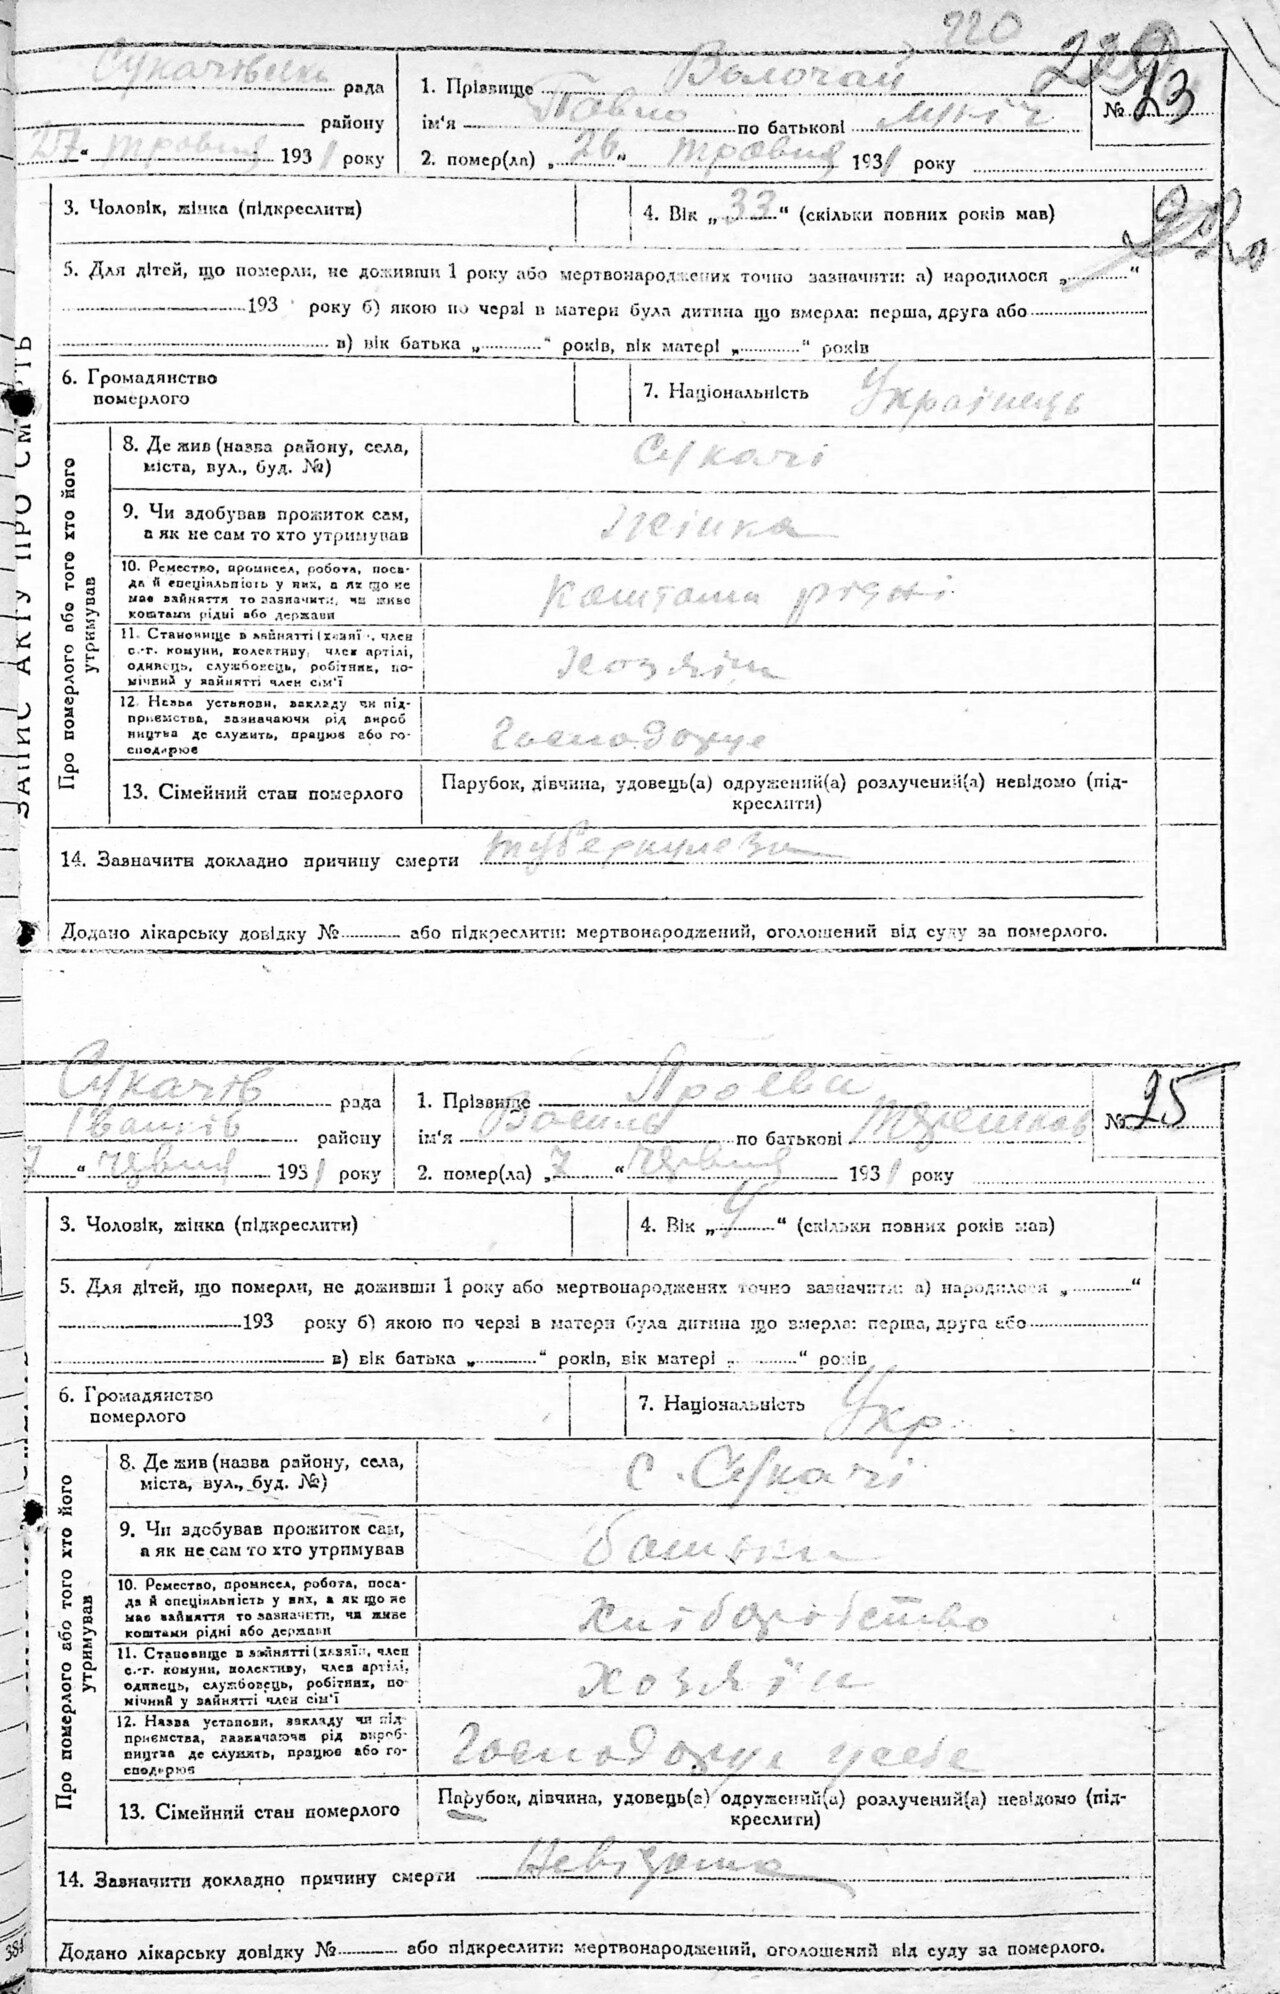 220
Сукачівська рада
району
27 " травня 1931 року
1. Прізвище Волочай
ім'я Павло по батькові
2. помер(ла) „ 26 " травня 1931 року
№ 23
3. Чоловік, жінка (підкреслити)
4. Вік „ 33 " (скільки повних років мав)
5. Для дітей, що померли, не доживши 1 року або мертвонароджених точно зазначити: а) народилося „ "
193 року б) якою по черзі в матери була дитина що вмерла: перша, друга або
в) вік батька „ " років, вік матері „ " років
6. Громадянство
померлого
7. Національність Українець
ЗАПИС АКТУ ПРО СМЕРТЬ
Про померлого або того хто його
утримував
8. Де жив (назва району, села,
міста, вул., буд. №)
Сукачі
9. Чи здобував прожиток сам,
а як не сам то хто утримував
жінка
10. Ремество, промисел, робота, поса-
да й спеціяльність у них, а як що не
має зайняття то зазначити, чи живе
коштами рідні або держави
коштами рідні
11. Становище в зайнятті (хазяїн, член
с.-г. комуни, колективу, член артілі,
одинець, службовець, робітник, по-
мічний у зайнятті член сім'ї
хозяїн
12. Назва установи, закладу чи під-
приємства, зазначаючи рід вироб
ництва де служить, працює або го-
сподарює
Господарує
13. Сімейний стан померлого
Парубок, дівчина, удовець(а) одружений(а) розлучений(а) невідомо (під-
креслити)
14. Зазначити докладно причину смерти туберкулези
Додано лікарську довідку № або підкреслити: мертвонароджений, оголошений від суду за померлого.
Сукачів рада
Іванків району
7 " червня 1931 року
1. Прізвище
ім'я Василь по батькові
2. помер(ла) „ 7 " червня 1931 року
№ 25
3. Чоловік, жінка (підкреслити)
4. Вік „ 4 " (скільки повних років мав)
5. Для дітей, що померли, не доживши 1 року або мертвонароджених точно зазначити: а) народилося „ "
193 року б) якою по черзі в матери була дитина що вмерла: перша, друга або
в) вік батька „ " років, вік матері „ " років
6. Громадянство
померлого
7. Національність Укр
Про померлого або того хто його
утримував
8. Де жив (назва району, села,
міста, вул., буд. №)
с. Сукачі
9. Чи здобував прожиток сам,
а як не сам то хто утримував
батьки
10. Ремество, промисел, робота, поса-
да й спеціяльність у них, а як що не
має зайняття то зазначити, чи живе
коштами рідні або держави
хліборобство
11. Становище в зайнятті (хазяїн, член
с.-г. комуни, колективу, член артілі,
одинець, службовець, робітник, по-
мічний у зайнятті член сім'ї
хозяїн
12. Назва установи, закладу чи під-
приємства, зазначаючи рід вироб-
ництва де служить, працює або го-
сподарює
Господарує у себе
13. Сімейний стан померлого
Парубок, дівчина, удовець(а) одружений(а) розлучений(а) невідомо (під-
креслити)
14. Зазначити докладно причину смерти Невідома
Додано лікарську довідку № або підкреслити: мертвонароджений, оголошений від суду за померлого.
384